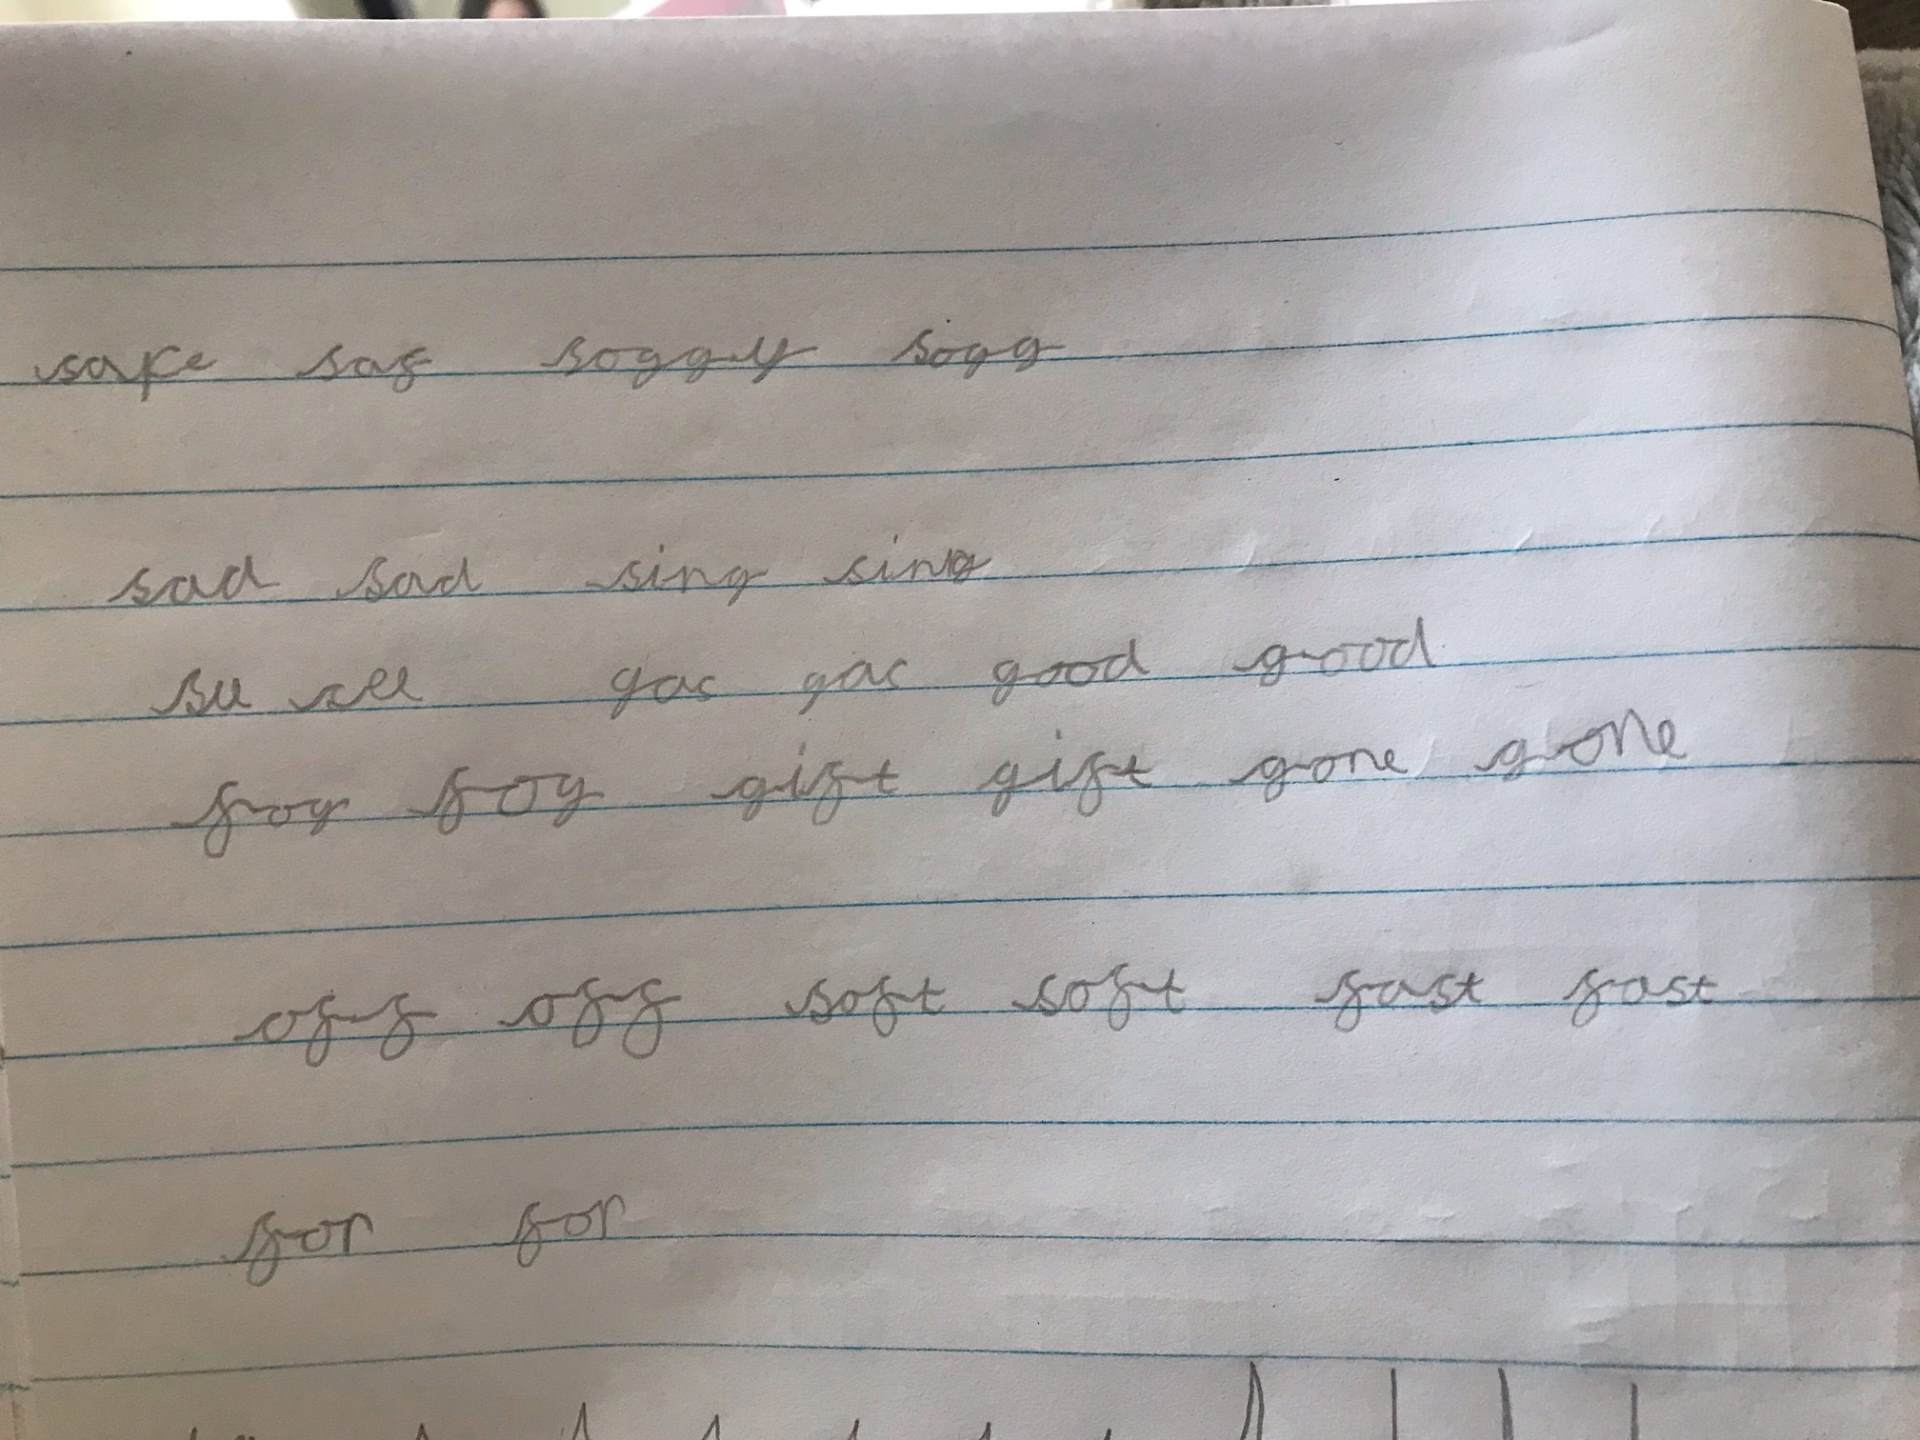 safe saf soggy sogg
sad sad sing sing
see see gas gas good good
fog fog gift gift gone gone
off off soft soft fast fast
for for